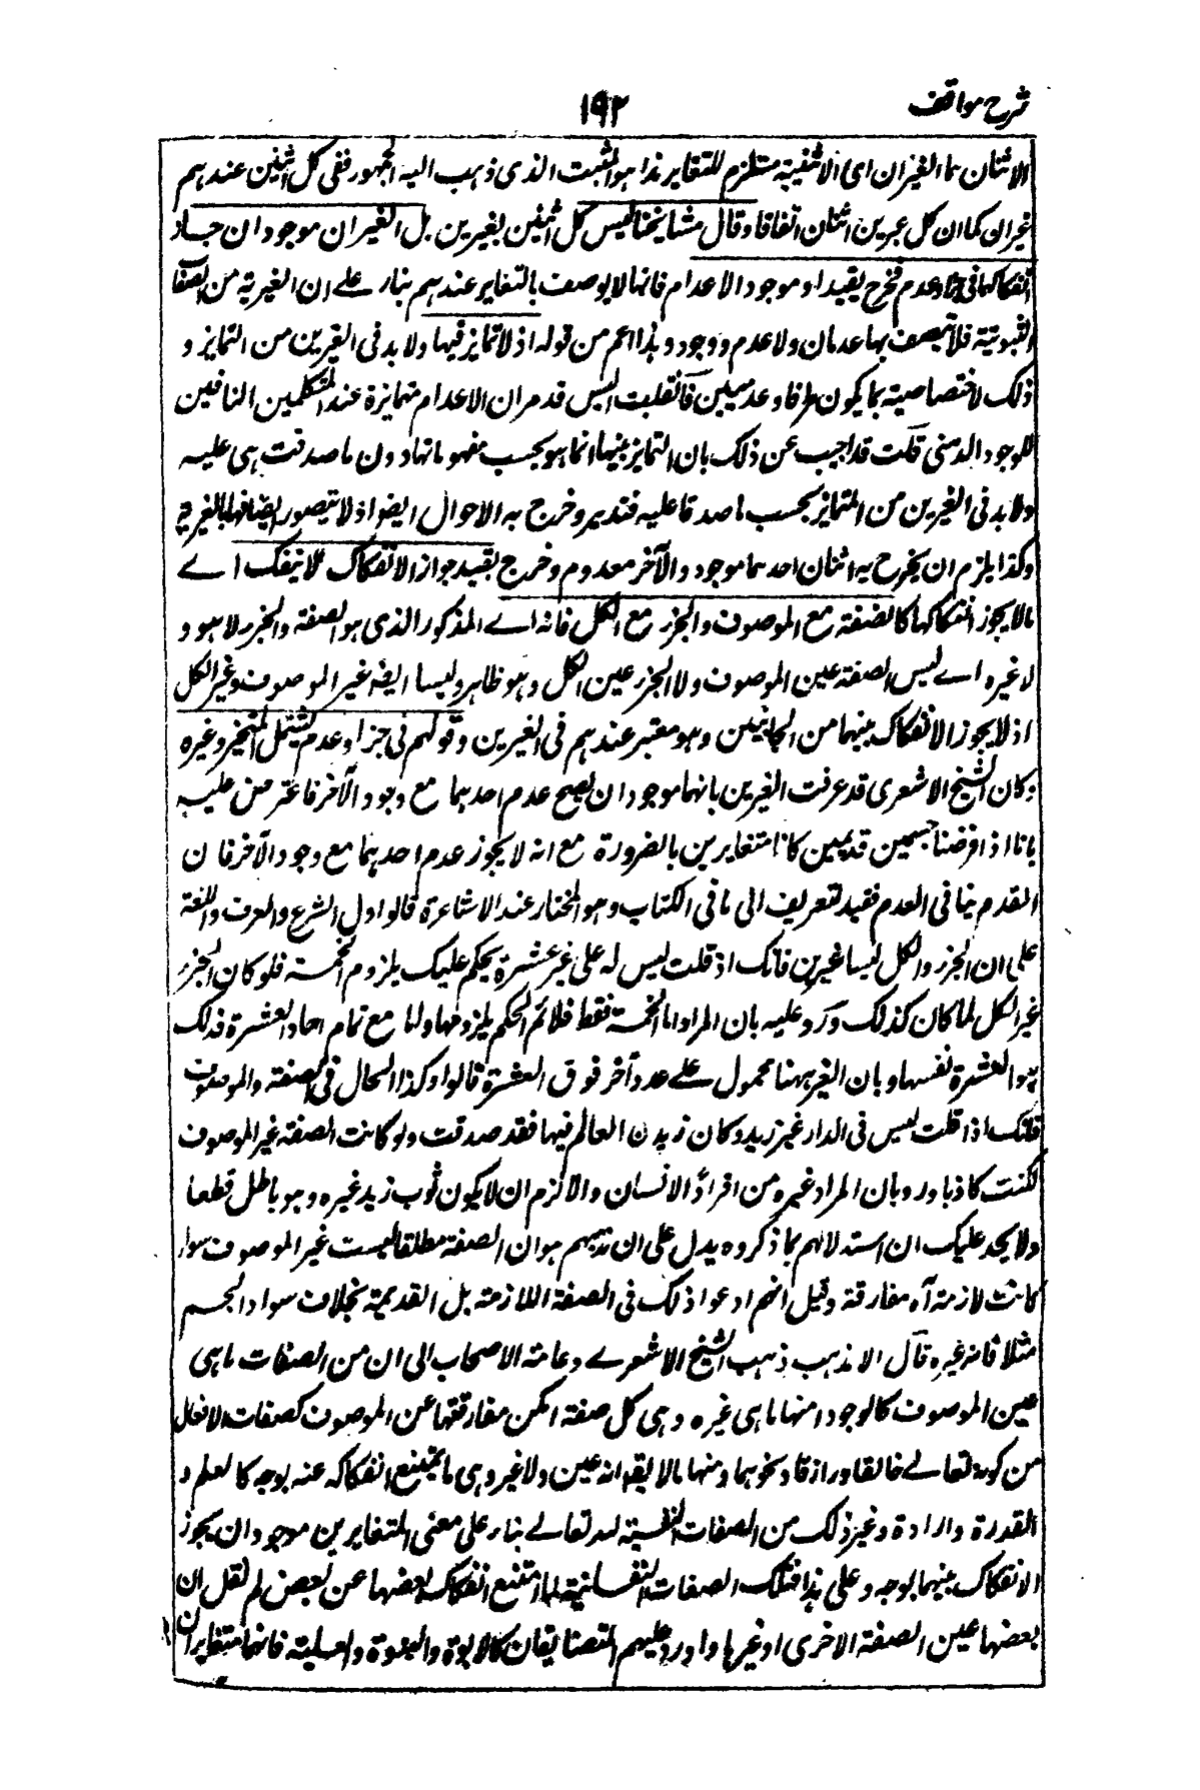 شرح مواقف
١٩٢
الاثنان هما الغيران اى الاثنينية مستلزم للتغاير هذا هو المثبت الذى ذهب اليه الجمهور ففى كل اثنين عندهم
غيران كما ان كل غيرين اثنان اتفاقا وقال مشايخنا ليس كل اثنين بغيرين بل الغيران موجودان جاز
انفكاكهما فى حيز او عدم فخرج بقيد او موجود الاعدام فانها لا يوصف بالتغاير عندهم بناء على ان الغيرية من الصفات
الثبوتية فلا يتصف بها عدمان ولا عدم ووجود وهذا اعم من قوله اذ لا تمايز فيها ولا بد فى الغيرين من التمايز و
ذلك لاختصاصيته بما يكون طرفاه عدميين فان قلت اليس قد مر ان الاعدام متمايزة عند المتكلمين النافين
للوجود الذهنى قلت قد اجيب عن ذلك بان التمايز بينها انما هو بحسب مفهوماتها دون ما صدقت هى عليه
ولا بد فى الغيرين من التمايز بحسب ما صدقا عليه فتدبر وخرج به الاحوال ايضا اذ لا يتصور اتصافها بالغيرية
وكذا يلزم ان يخرج به اثنان احدهما موجود والآخر معدوم وخرج بقيد جواز الانفكاك ما لا ينفك اے
ما لا يجوز انفكاكها كالصفة مع الموصوف والجزء مع الكل فانه اے المذكور الذى هو الصفة والجزء لا هو و
لا غيره اے ليس الصفة عين الموصوف ولا الجزء عين الكل وهو ظاهر وليسا ايضا غير الموصوف وغير الكل
اذ لا يجوز الانفكاك بينهما من الجانبين وهو معتبر عندهم فى الغيرين وقولهم فى حيز او عدم ليشمل المتحيز وغيره
وكان الشيخ الاشعرى قد عرف الغيرين بانهما موجودان يصح عدم احدهما مع وجود الآخر فاعترض عليه
بانا اذا فرضنا جسمين قديمين كانا متغايرين بالضرورة مع انه لا يجوز عدم احدهما مع وجود الآخر فان
القدم ينافى العدم فغير التعريف الى ما فى الكتاب وهو المختار عند الاشاعرة قالوا دل الشرع والعرف واللغة
على ان الجزء والكل ليسا غيرين فانك اذ قلت ليس له على غير عشرة يحكم عليك بلزوم الخمسة فلو كان الجزء
غير الكل لما كان كذلك ورد عليه بان المراد اما الخمسة فقط فلا ثم الحكم بلزومها واما مع تمام احاد العشرة فذلك
هو العشرة نفسها وبان الغير ههنا محمول على عدد آخر فوق العشرة قالوا وكذا الحال فى الصفة والموصوف
فانك اذا قلت ليس فى الدار غير زيد وكان زيدن العالم فيها فقد صدقت ولو كانت الصفة غير الموصوف
لكنت كاذبا ورد بان المراد غيره من افراد الانسان والا لزم ان لا يكون ثوب زيد غيره وهو باطل قطعا
ولا يخفى عليك ان استدلالهم بما ذكروه يدل على ان مذهبهم هو ان الصفة مطلقا ليست غير الموصوف سواء
كانت لازمة او مفارقة وقيل انهم ادعوا ذلك فى الصفة اللازمة بل القديمة بخلاف سواد الجسم
مثلا فانه غيره قال الآمدى ذهب الشيخ الاشعرے وعامة الاصحاب الى ان من الصفات ما هى
عين الموصوف كالوجود ومنها ما هى غيره وهى كل صفة امكن مفارقتها عن الموصوف كصفات الافعال
من كونه تعالے خالقا ورازقا ونحوهما ومنها ما لا يقال انه عين ولا غير وهى ما يمتنع انفكاكه عنه بوجه كالعلم و
القدرة وارادة وغير ذلك من الصفات النفسية لله تعالے بناء على معنى المتغايرين موجودان يجوز
الانفكاك بينهما بوجه وعلى هذا فتلك الصفات النفسانية لما امتنع انفكاك بعضها عن بعض لم نقل ان
بعضها عين الصفة الاخرى او غيرها واورد عليهم المتضايفان كالابوة والبنوة والعلية فانهما متغايران